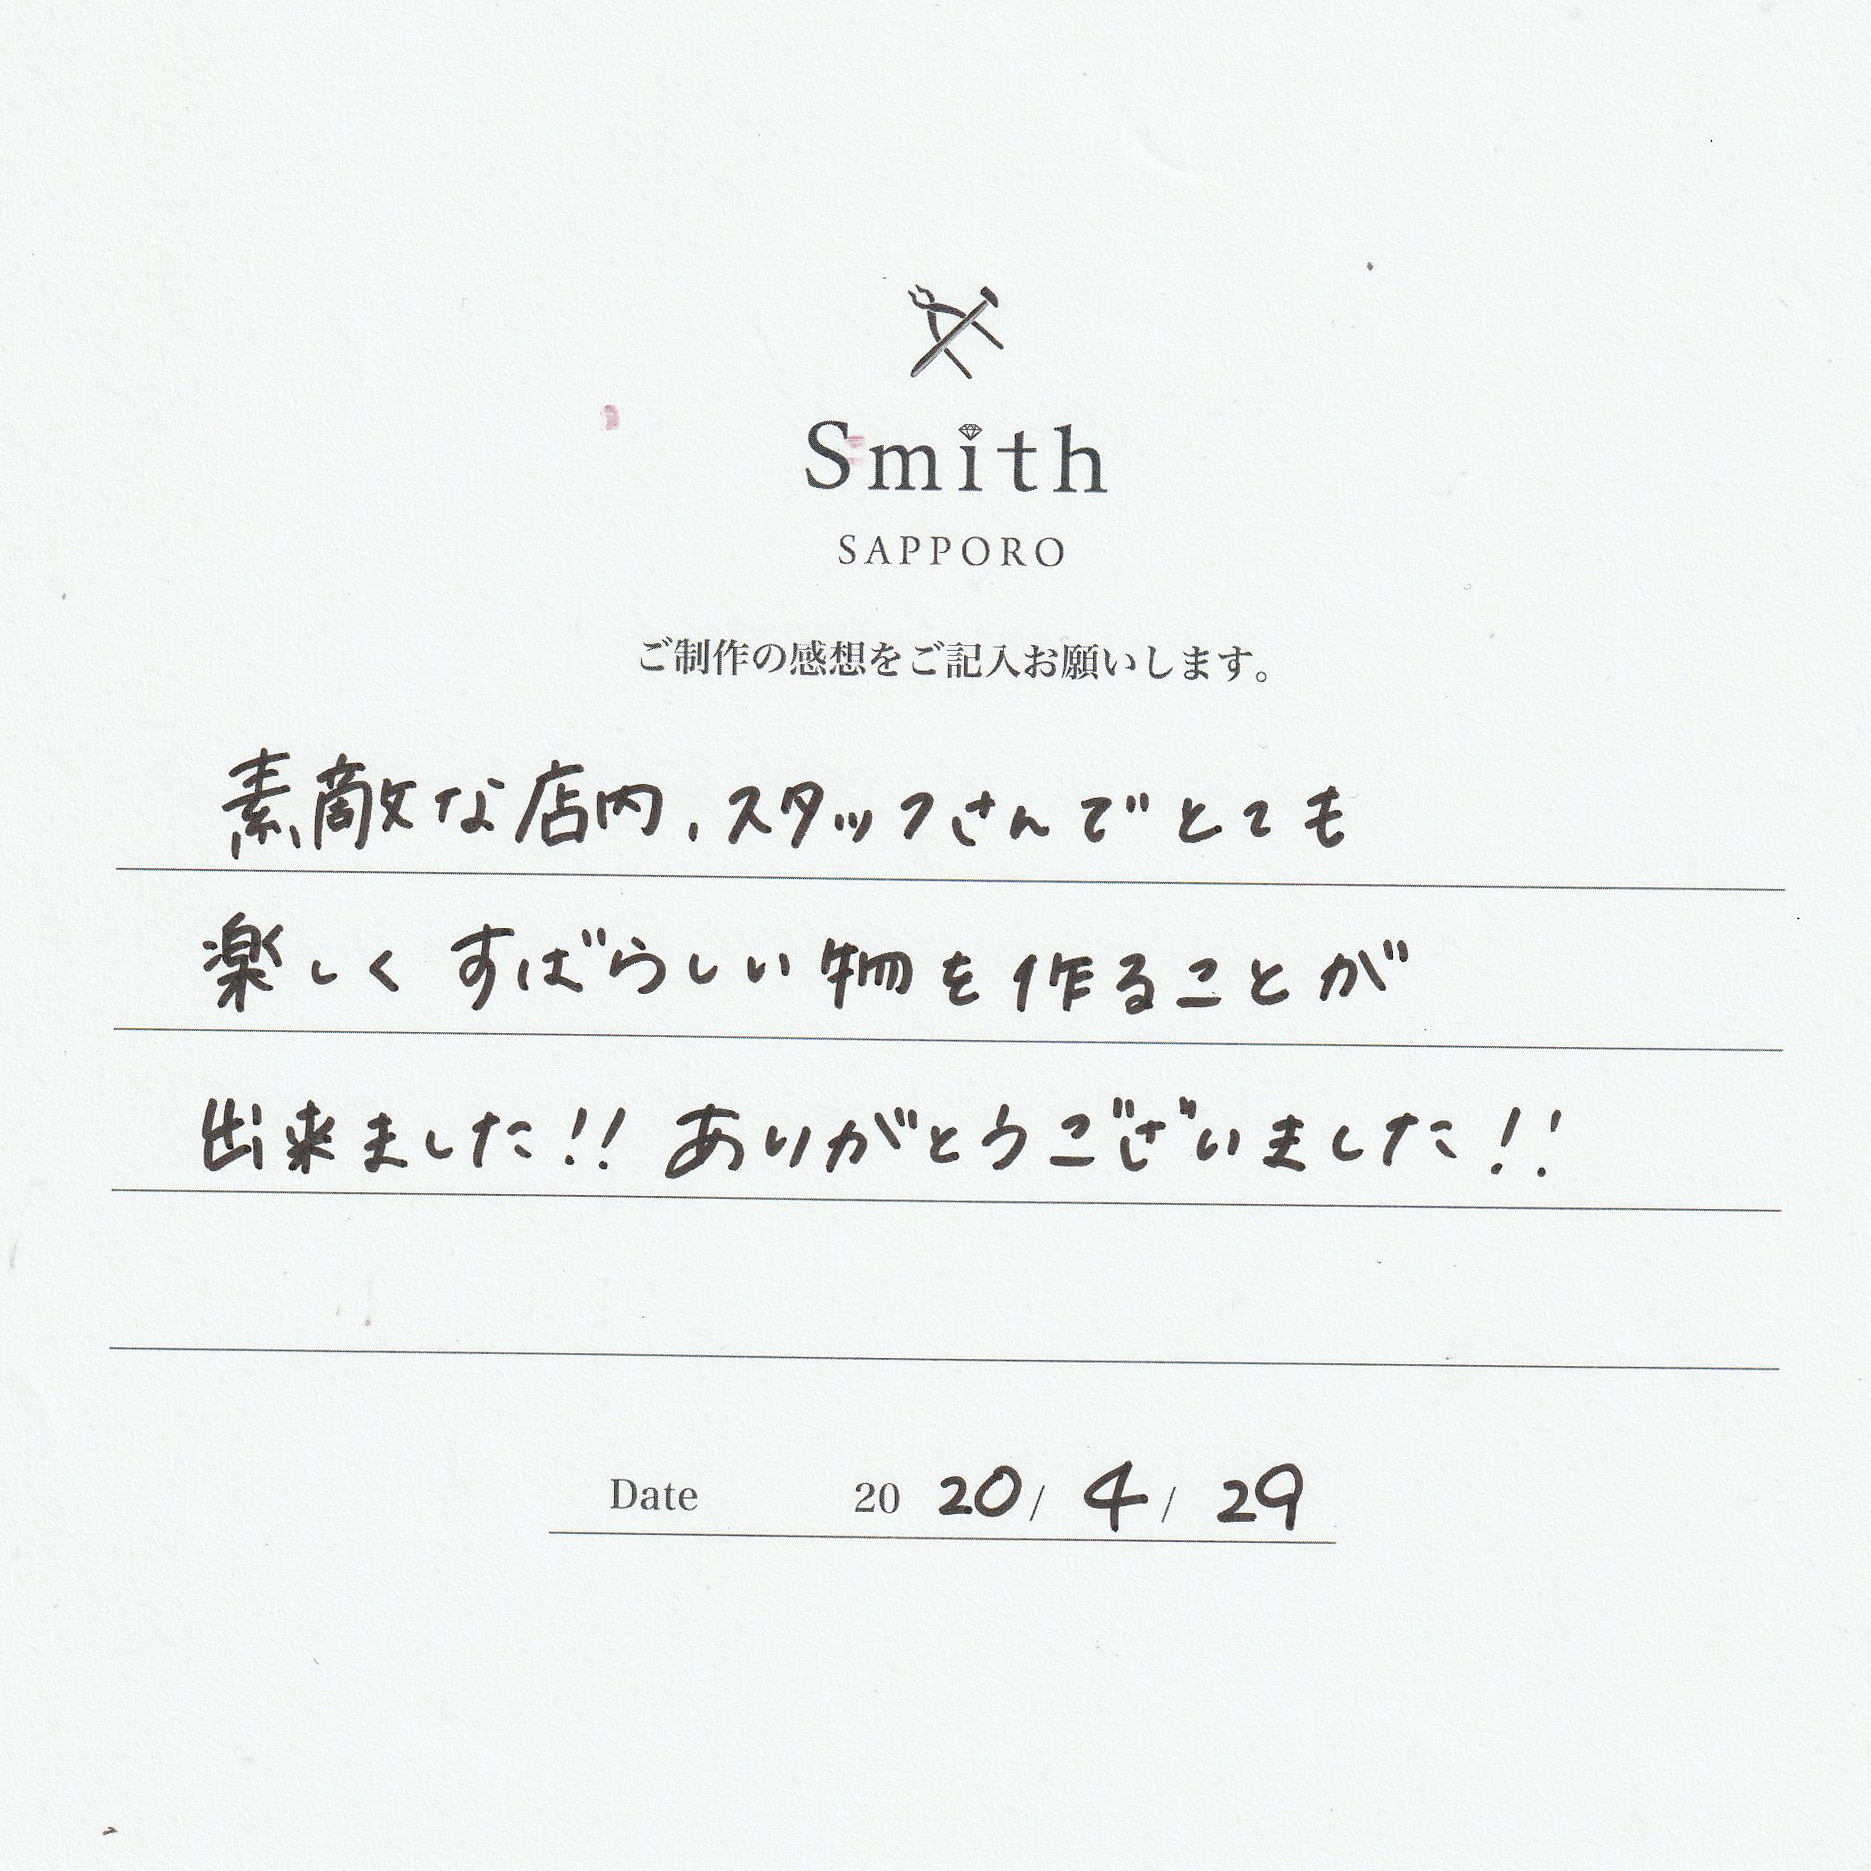 Smith
SAPPORO
ご制作の感想をご記入お願いします。
素敵な店内、スタッフさんでとても
楽しくすばらしい物を作ることが
出来ました!! ありがとうございました!!
Date 20 20/ 4/ 29